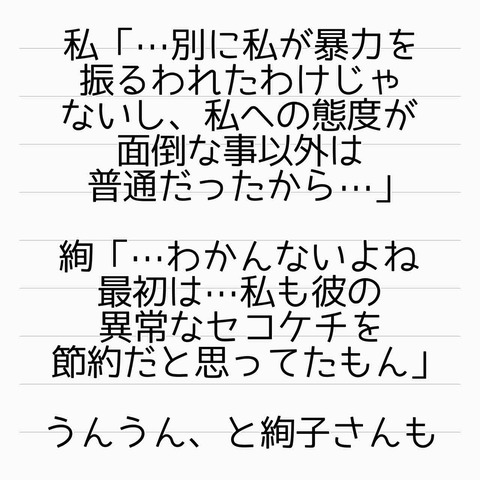 私「…別に私が暴力を
振るわれたわけじゃ
ないし、私への態度が
面倒な事以外は
普通だったから…」
絢「…わかんないよね
最初は…私も彼の
異常なセコケチを
節約だと思ってたもん」
うんうん、と絢子さんも